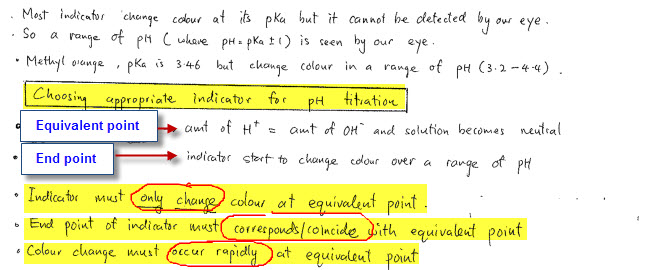 • Most indicator change colour at its pKa but it cannot be detected by our eye.
• So a range of pH (where pH = pKa ± 1) is seen by our eye.
• Methyl orange, pKa is 3.46 but change colour in a range of pH (3.2 – 4.4).
Choosing appropriate indicator for pH titration
• Equivalent point → amt of H⁺ = amt of OH⁻ and solution becomes neutral
• End point → indicator start to change colour over a range of pH
• Indicator must only change colour at equivalent point.
• End point of indicator must corresponds/coincide with equivalent point
• Colour change must occur rapidly at equivalent point